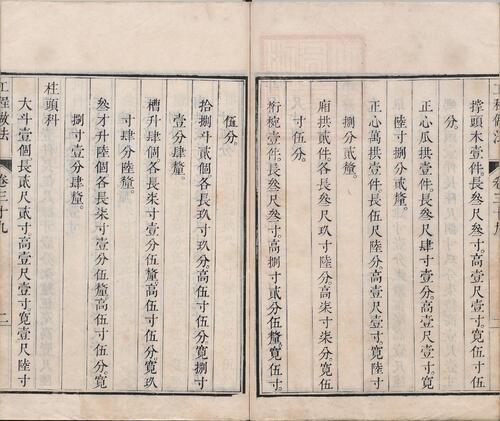 撑頭木壹件長叁尺叁寸高壹尺壹寸寬伍
分
正心瓜拱壹件長叁尺肆寸壹分高壹尺壹寸寬
陸寸捌分貳釐
正心萬拱壹件長伍尺陸分高壹尺壹寸寬陸寸
捌分貳釐
廂拱貳件各長叁尺陸分高柒寸柒分寬伍
寸伍分
桁椀壹件長叁尺叁寸高捌寸貳分伍釐寬伍寸
伍分
拾捌斗貳個各長玖寸玖分高伍寸伍分寬捌寸
壹分肆釐
槽升肆個各長柒寸壹分伍釐高伍寸伍分寬玖
寸肆分陸釐
叁才升陸個各長柒寸壹分伍釐高伍寸伍分寬
捌寸壹分肆釐
柱頭科
大斗壹個長貳尺貳寸高壹尺壹寸寬壹尺陸寸
工程做法
卷三十九
二